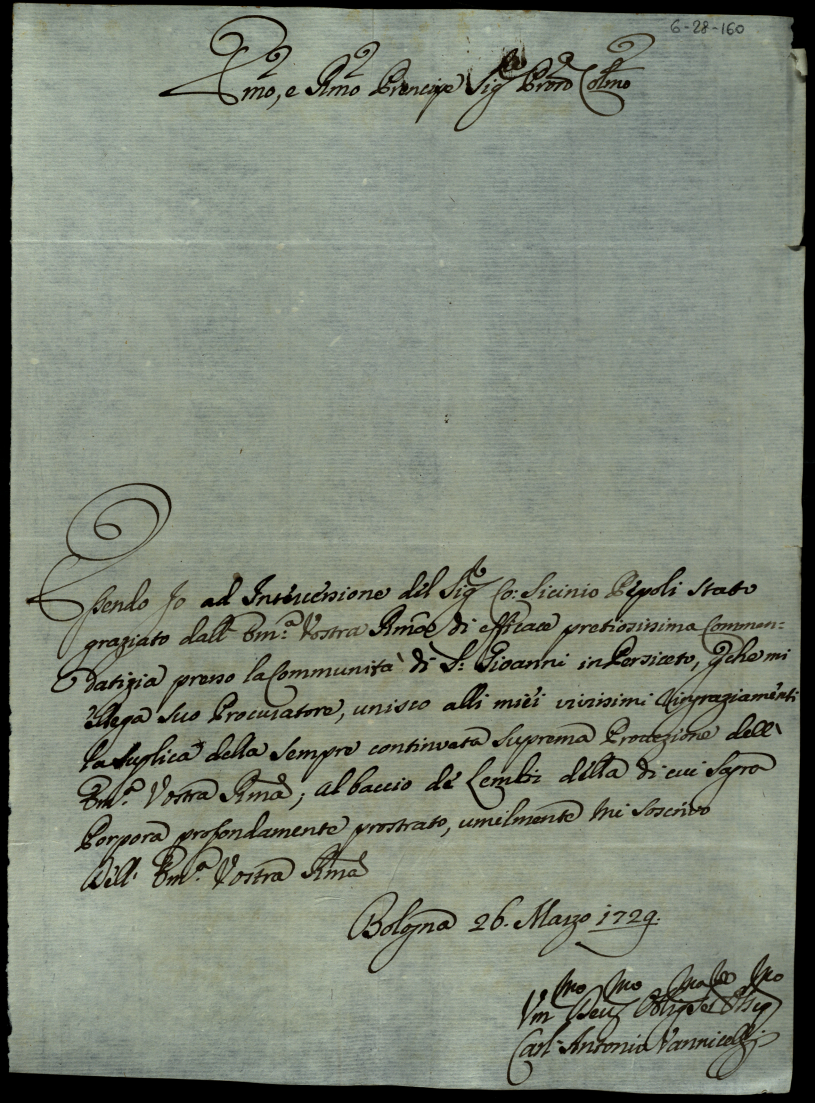 6-28-160
Emo, e Rmo Prencipe Sigr Prone Colmo
Essendo Io ad Intercessione del Sigr Co: Sicinio Pepoli stato
graziato dall' Em.a Vostra Rma di efficace pretiosissima Commen=
datizia presso la Communità di S. Gioanni in Persiceto, che mi
ellega suo Procuratore, unisco alli miei vivissimi ringraziamenti
la suplica della sempre continvata suprema Protezione dell'
Em.a Vostra Rma; al baccio de Lembi della di cui Sagra
Porpora profondamente prostrato, umilmente mi soscrivo
Dell' Em.a Vostra Rma
Bologna 26. Marzo 1729.
mo mo mo mo
Um Dev Oblig Ser
Carl' Antonio Vannicelli